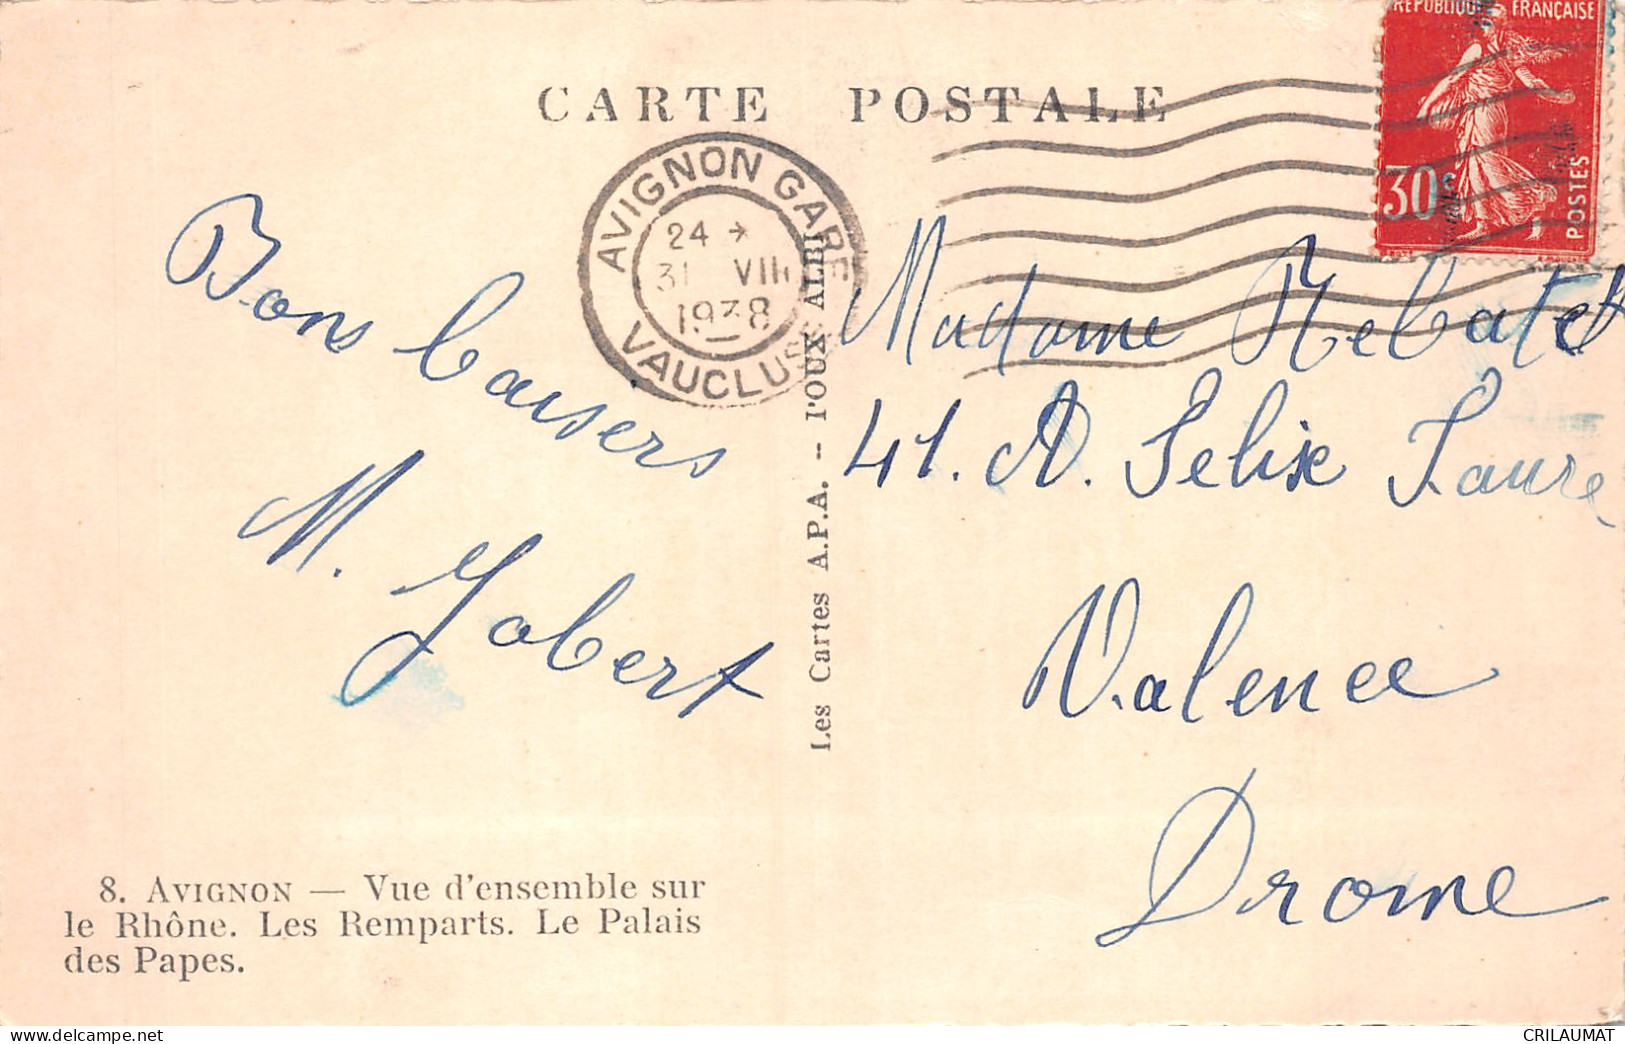 CARTE POSTALE
RÉPUBLIQUE FRANÇAISE
30c
POSTES
AVIGNON GARE
24
31 VII
1938
VAUCLUSE
Bons baisers
M. Jobert
Madame Rebatet
41. A. Felix Faure
Valence
Drome
Les Cartes A.P.A. -- POUX ALBI
8. AVIGNON — Vue d'ensemble sur
le Rhône. Les Remparts. Le Palais
des Papes.
CRILAUMAT